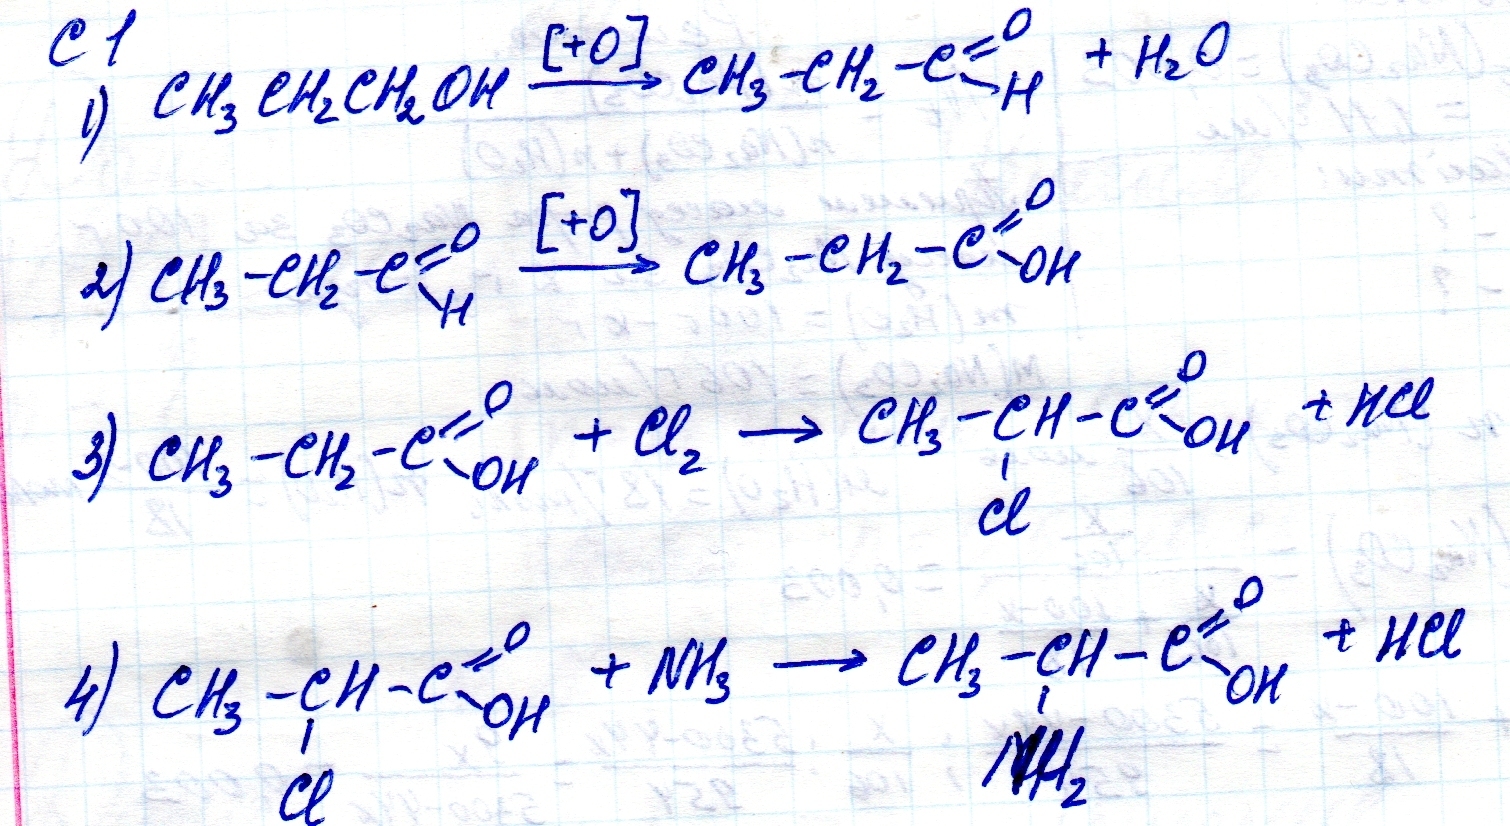 C1
1) CH₃CH₂CH₂OH [+O] → CH₃-CH₂-C(=O)-H + H₂O
2) CH₃-CH₂-C(=O)-H [+O] → CH₃-CH₂-C(=O)-OH
3) CH₃-CH₂-C(=O)-OH + Cl₂ → CH₃-CH(Cl)-C(=O)-OH + HCl
4) CH₃-CH(Cl)-C(=O)-OH + NH₃ → CH₃-CH(NH₂)-C(=O)-OH + HCl